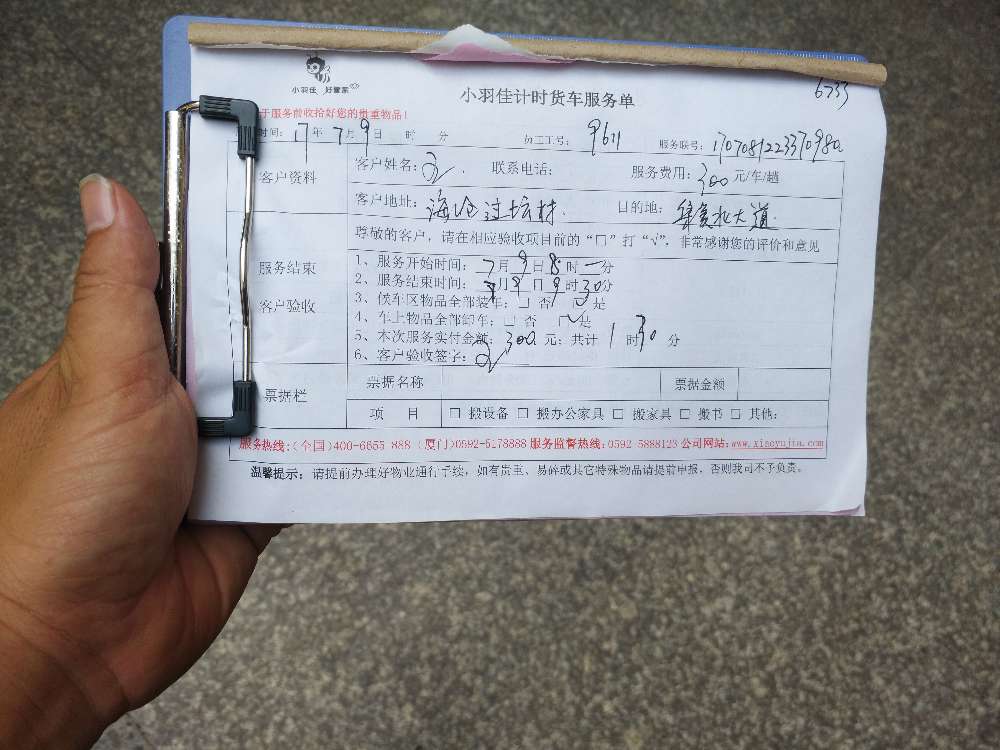 小羽佳 好管家
小羽佳计时货车服务单
6733
于服务前收拾好您的贵重物品!
时间: 17年 7月 9日 时 分 员工工号: 9611 服务联号:
客户资料
客户姓名: 联系电话: 服务费用: 300 元/车/趟
客户地址: 海沧过坛村. 目的地: 北大道.
尊敬的客户, 请在相应验收项目前的“□”打“√”, 非常感谢您的评价和意见
服务结束
客户验收
1、服务开始时间: 7月9日8时一分
2、服务结束时间: 7月9日9时30分
3、候车区物品全部装车: □ 否 ☑ 是
4、车上物品全部卸车: □ 否 ☑ 是
5、本次服务实付金额: 300 元; 共计 1 时 30 分
6、客户验收签字:
票据栏
票据名称 票据金额
项 目 □ 搬设备 □ 搬办公家具 □ 搬家具 □ 搬书 □ 其他:
服务热线:(全国)400-6655 888 (厦门)0592-5178888 服务监督热线:0592-5888123 公司网站:www.xiaoyujia.com
温馨提示: 请提前办理好物业通行手续, 如有贵重、易碎或其它特殊物品请提前申报, 否则我司不予负责。